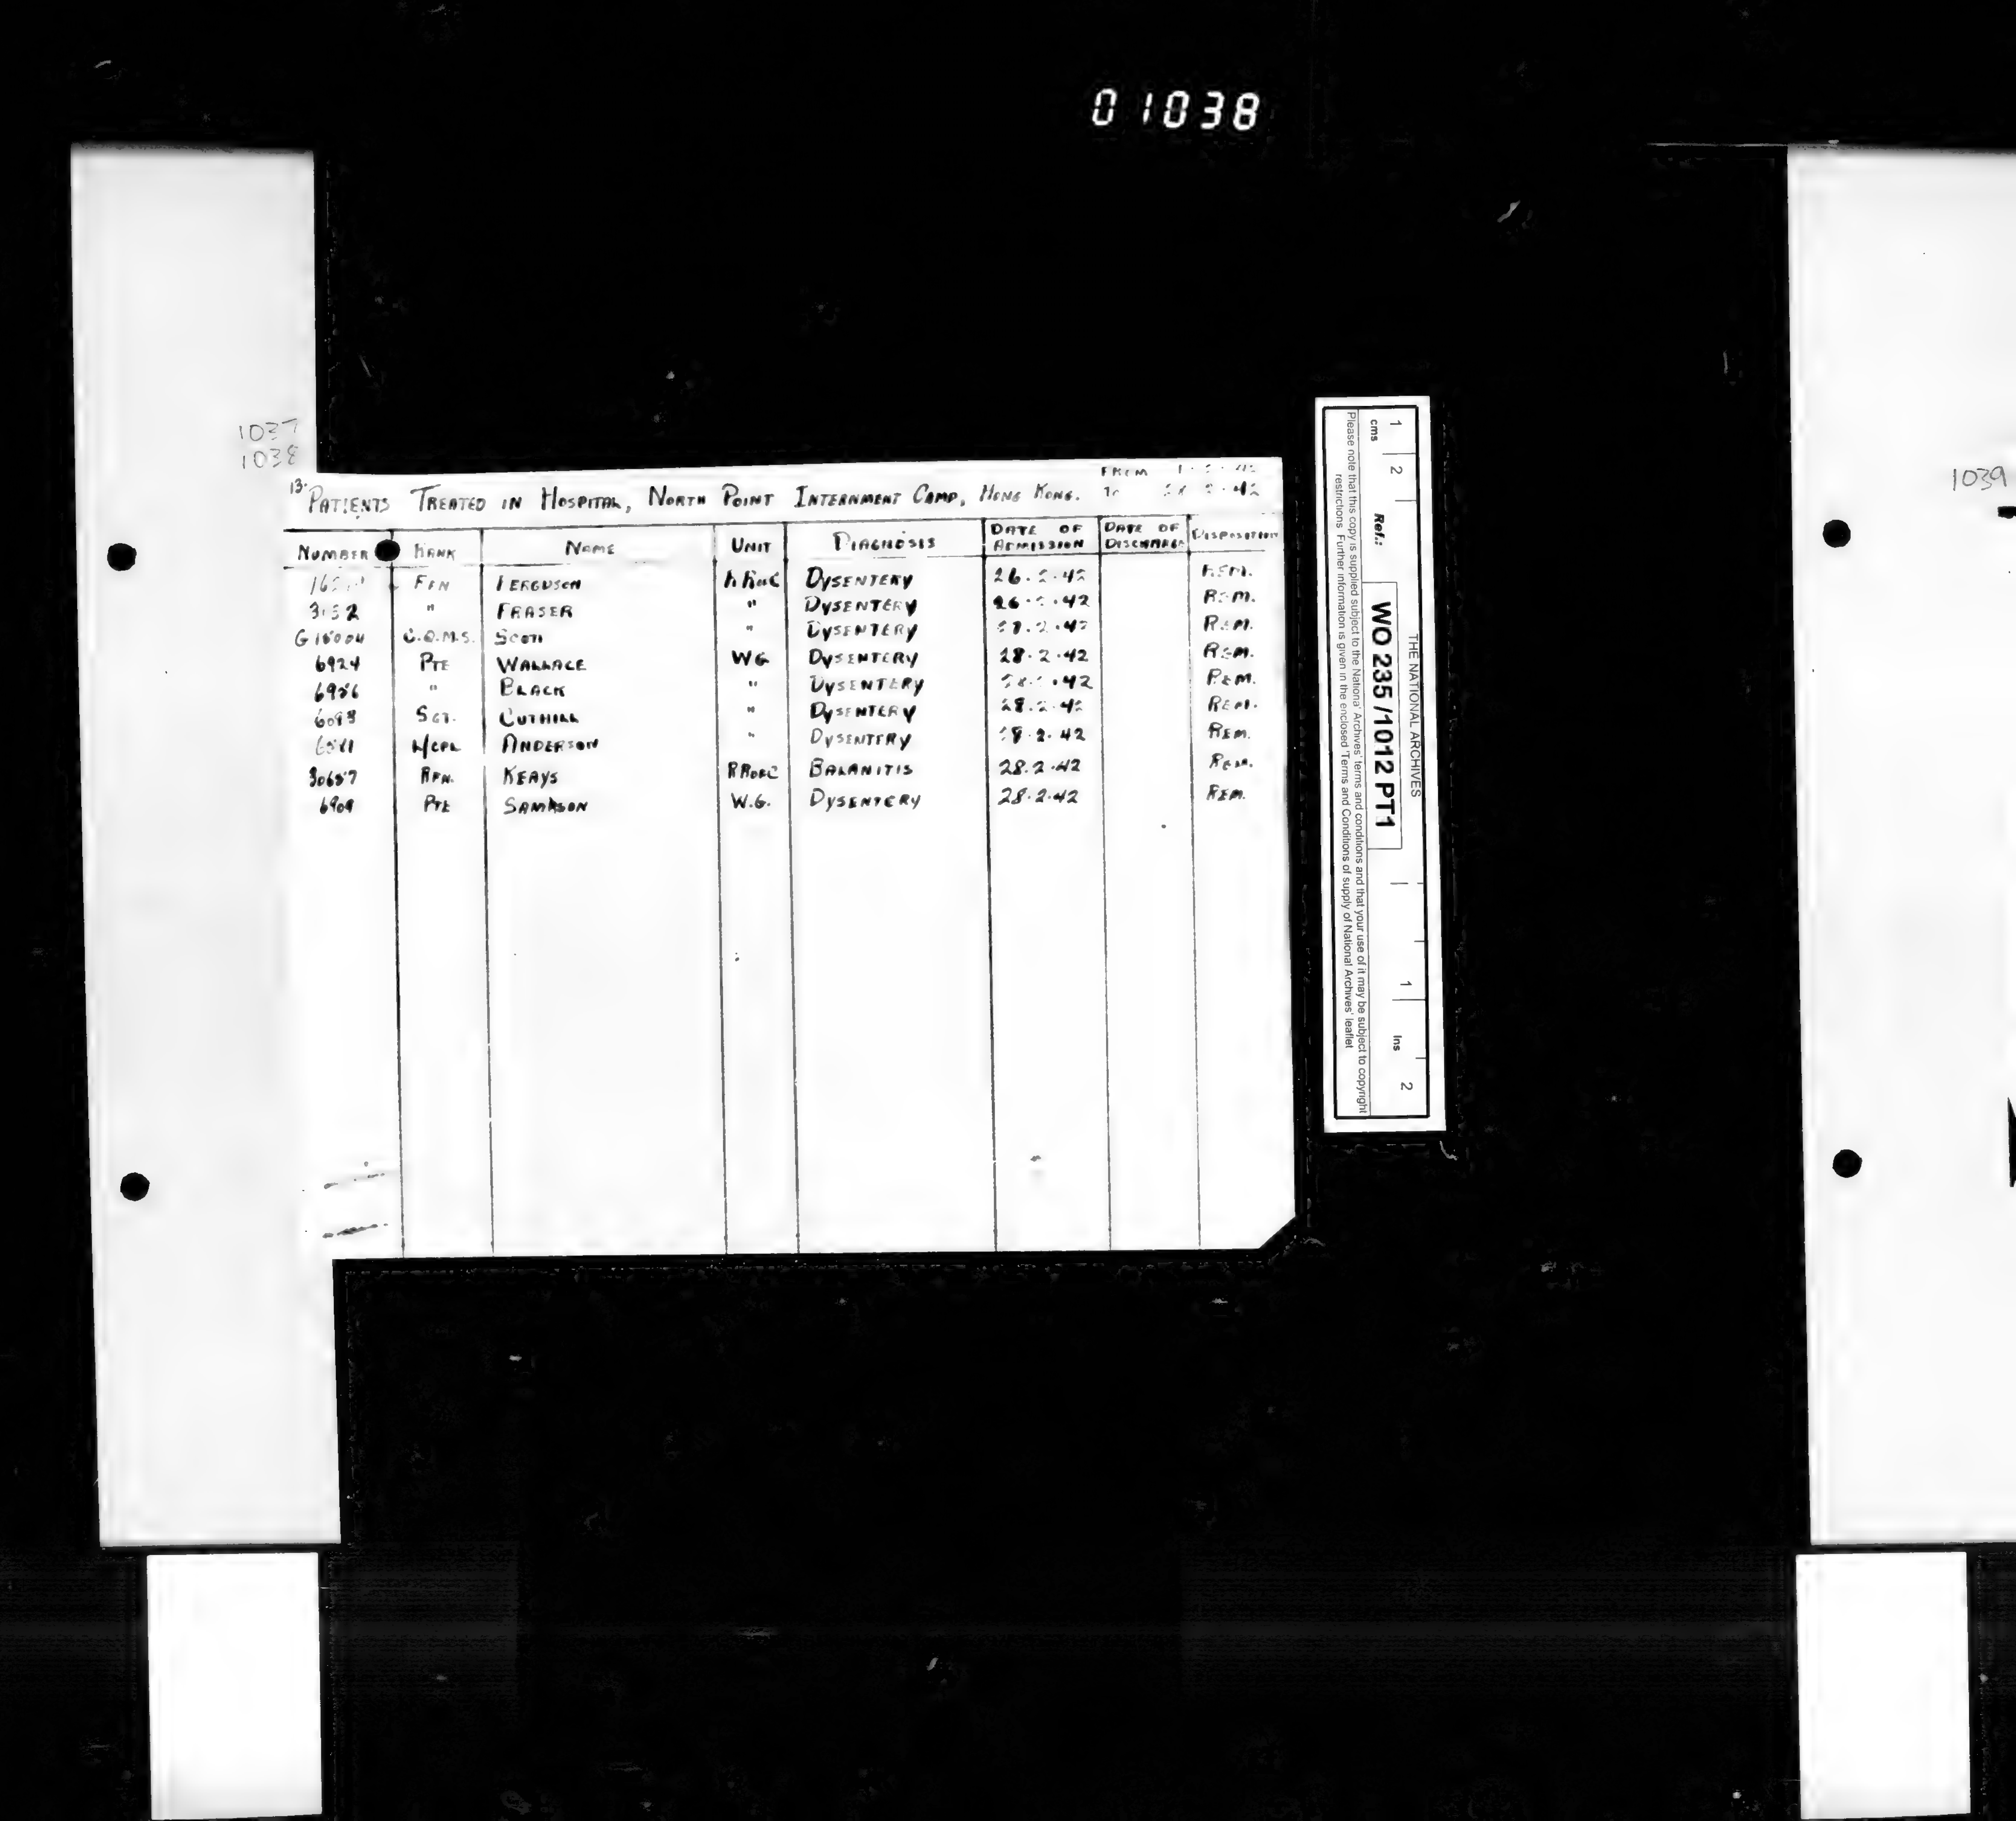 01038
1037
1038
1039
FROM
13. PATIENTS TREATED IN HOSPITAL, NORTH POINT INTERNMENT CAMP, HONG KONG. TO 28.2.42
NUMBER RANK NAME UNIT DIAGNOSIS DATE OF ADMISSION DATE OF DISCHARGE DISPOSITION
RFN FERGUSON RRofC DYSENTERY 26.2.42 REM.
" FRASER " DYSENTERY 26.2.42 REM.
G18004 C.Q.M.S. SCOTT " DYSENTERY REM.
6924 PTE WALLACE WG DYSENTERY 28.2.42 REM.
" BLACK " DYSENTERY REM.
SGT. CUTHILL " DYSENTERY 28.2.42 REM.
L/CPL ANDERSON " DYSENTERY 28.2.42 REM.
RFN. KEAYS RRofC BALANITIS 28.2.42 REM.
6909 PTE SAMPSON W.G. DYSENTERY 28.2.42 REM.
THE NATIONAL ARCHIVES
1 2 1 2
cms Ref.: WO 235 /1012 PT1 Ins
Please note that this copy is supplied subject to the National Archives' terms and conditions and that your use of it may be subject to copyright
restrictions. Further information is given in the enclosed 'Terms and Conditions of supply of National Archives' leaflet